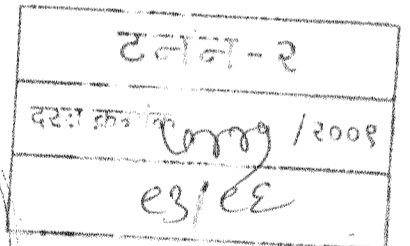 टनन - २
दस्त क्रमांक / २००९
९३/९६